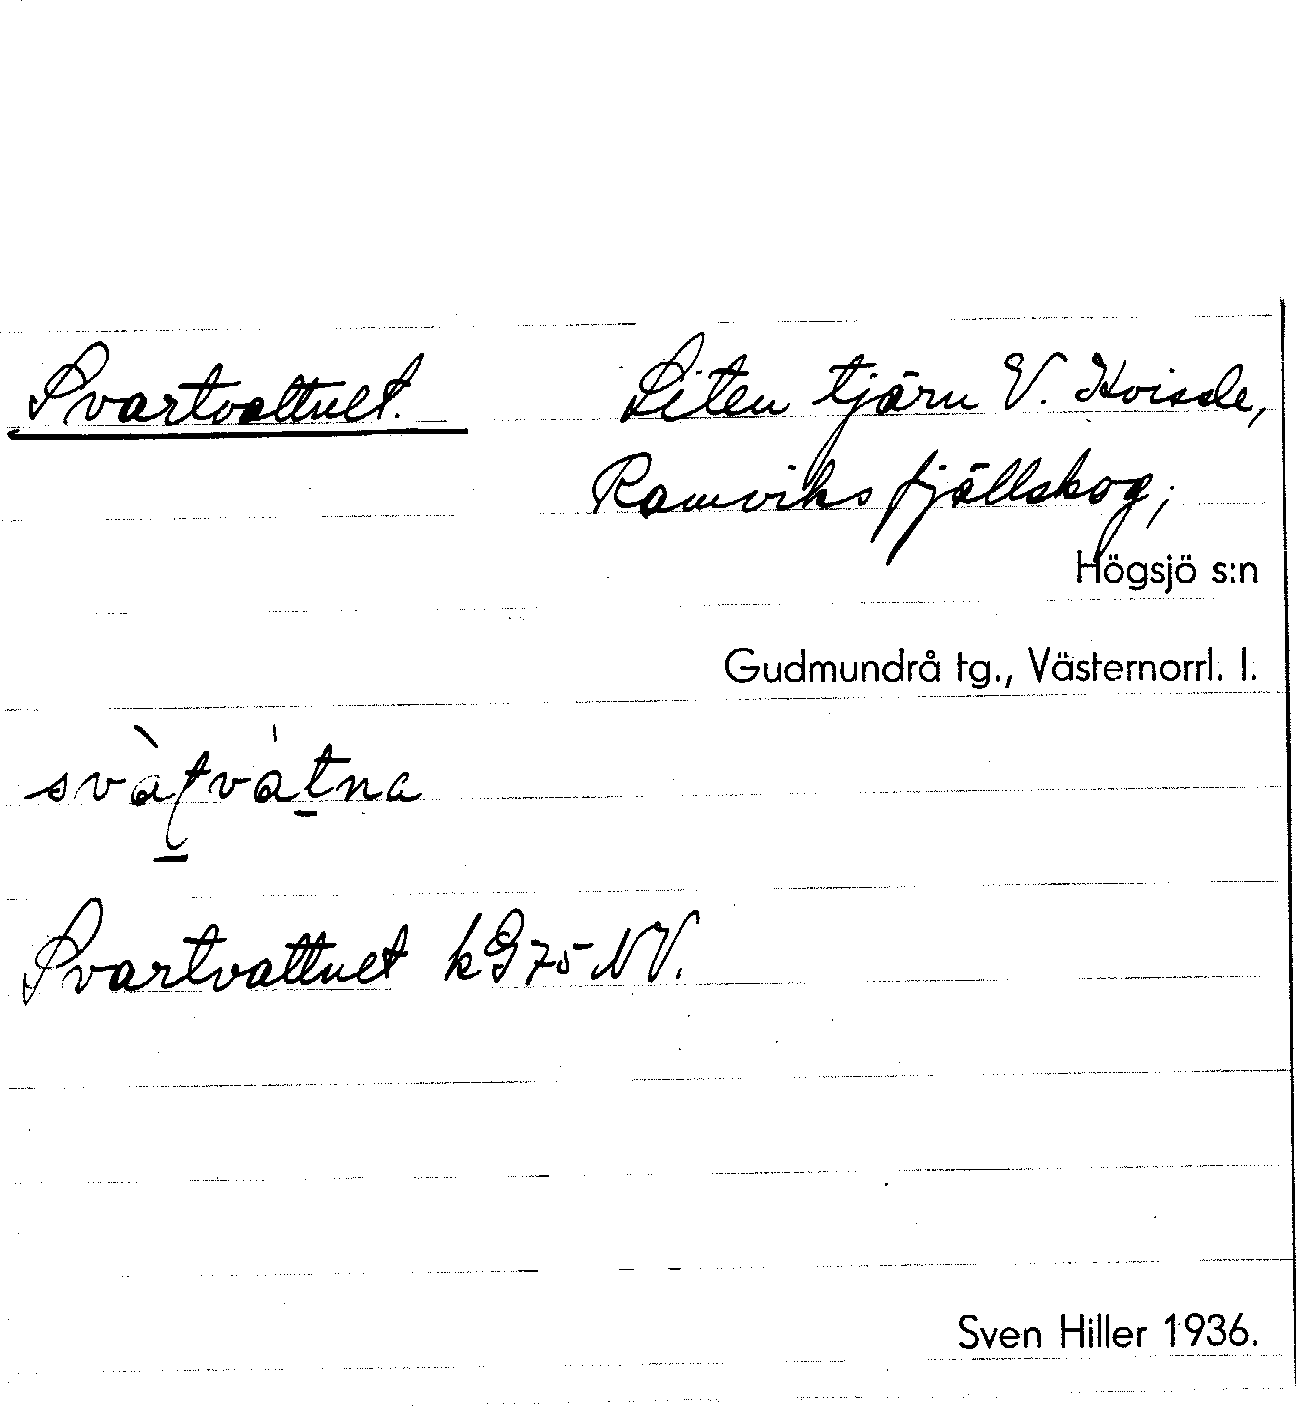 Svartvattnet.
Liten tjärn V. Hvissle,
Ramviks fjällskog,
Högsjö s:n
Gudmundrå tg., Västernorrl. l.
Svartvattnet kG75 NV.
Sven Hiller 1936.